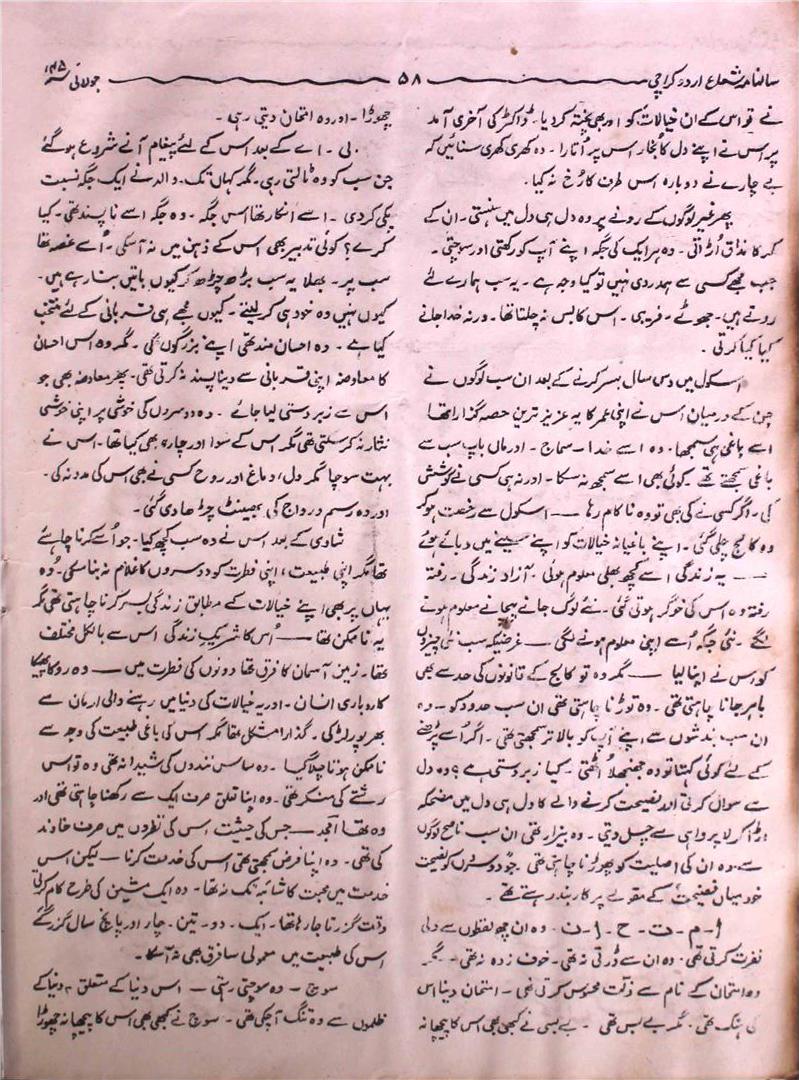 سالنامہ شعاع اردو کراچی ۵۸ جولائی ۴۵ء
نے تو اس کے ان خیالات کو اور بھی پختہ کر دیا۔ ڈاکٹر کی آخری آمد
پر اس نے اپنے دل کا بخار اس پر اُتارا۔ وہ کھری کھری سنائیں کہ
بے چارے نے دوبارہ اس طرف کا رُخ نہ کیا۔
پھر غیر لوگوں کے رونے پر وہ دل ہی دل میں ہنستی۔ ان کے
کر کا مذاق اُڑاتی۔ وہ ہر ایک کی جگہ اپنے آپ کو رکھتی اور سوچتی۔
جب مجھے کسی سے ہمدردی نہیں تو کیا وجہ ہے۔ یہ سب ہمارے لئے
روتے ہیں۔ جھوٹے۔ فریبی۔ اس کا بس نہ چلتا تھا۔ ورنہ خدا جانے
کیا کیا کرتی۔
اسکول میں دس سال بسر کرنے کے بعد ان سب لوگوں نے
جن کے درمیان اس نے اپنی عمر کا یہ عزیز ترین حصہ گذارا تھا
اسے باغی ہی سمجھا۔ وہ اسے خدا۔ سماج۔ اور ماں باپ سب سے
باغی سمجھتے تھے۔ کوئی بھی اسے سمجھ نہ سکا۔ اور نہ ہی کسی نے کوشش
کی۔ اگر کسی نے کی بھی تو وہ ناکام رہا —— اسکول سے رخصت ہو کر
وہ کالج چلی گئی۔ اپنے باغیانہ خیالات کو اپنے سینے میں دبائے ہوئے
—— یہ زندگی اسے کچھ بھلی معلوم ہوئی۔ آزاد زندگی۔ رفتہ
رفتہ وہ اس کی خوگر ہوتی گئی۔ نئے لوگ جانے پہچانے معلوم ہونے
لگے۔ نئی جگہ اُسے اپنی معلوم ہونے لگی —— غرضیکہ سب نئی چیزوں
کو اس نے اپنا لیا —— مگر وہ تو کالج کے قانونوں کی حد سے بھی
باہر جانا چاہتی تھی۔ وہ توڑنا چاہتی تھی ان سب حدود کو۔ وہ
ان سب بندشوں سے اپنے آپ کو بالاتر سمجھتی تھی۔ اگر اُسے پڑھنے
کے لئے کوئی کہتا تو وہ جھنجھلا اُٹھتی۔ کیا زبردستی ہے؟ وہ دل
سے سوال کرتی اور نصیحت کرنے والے کا دل ہی دل میں مضحکہ
اڑا کر لاپرواہی سے چل دیتی۔ وہ بیزار تھی ان سب ناصح لوگوں
سے۔ وہ ان کی اصلیت کو چھوڑنا چاہتی تھی۔ جو دوسروں کو نصیحت
خود میاں فضیحت کے مقولے پر کاربند رہتے تھے۔
ا۔م۔ت۔ح۔ا۔ن۔ وہ ان چھ لفظوں سے دلی
نفرت کرتی تھی۔ وہ ان سے ڈرتی نہ تھی۔ خوف زدہ نہ تھی۔ مگر
وہ امتحان کے نام سے ذلت محسوس کرتی تھی۔ امتحان دینا اس
کی ہتک تھی۔ مگر بے بس تھی۔ بے بسی نے کبھی بھی اس کا پیچھا نہ
چھوڑا۔ اور وہ امتحان دیتی رہی۔
بی۔اے کے بعد اس کے لئے پیغام آنے شروع ہو گئے
جن سب کو وہ ٹالتی رہی۔ مگر کہاں تک۔ والد نے ایک جگہ نسبت
پکی کر دی۔ اسے انکار تھا اس جگہ۔ وہ جگہ اسے ناپسند تھی۔ کیا
کرے؟ کوئی تدبیر بھی اس کے ذہن میں نہ آسکی۔ اُسے غصہ تھا
سب پر۔ بھلا یہ سب بڑھ چڑھ کر کیوں باتیں بنا رہے ہیں۔
کیوں نہیں وہ خود ہی کر لیتے۔ کیوں مجھے ہی قربانی کے لئے منتخب
کیا ہے۔ وہ احسان مند تھی اپنے بزرگوں کی۔ مگر وہ اس احسان
کا معاوضہ اپنی قربانی سے دینا پسند نہ کرتی تھی۔ پھر معاوضہ بھی جو
اس سے زبردستی لیا جائے۔ وہ دوسروں کی خوشی پر اپنی خوشی
نثار نہ کر سکتی تھی مگر اس کے سوا اور چارہ بھی کیا تھا۔ اس نے
بہت سوچا مگر دل، دماغ اور روح کسی نے بھی اس کی مدد نہ کی۔
اور وہ رسم و رواج کی بھینٹ چڑھا دی گئی۔
شادی کے بعد اس نے وہ سب کچھ کیا۔ جو اُسے کرنا چاہئے
تھا مگر اپنی طبیعت، اپنی فطرت کو دوسروں کا غلام نہ بنا سکی۔ وہ
یہاں پر بھی اپنے خیالات کے مطابق زندگی بسر کرنا چاہتی تھی مگر
یہ ناممکن تھا —— اُس کا شریکِ زندگی اس سے بالکل مختلف
تھا۔ زمین آسمان کا فرق تھا دونوں کی فطرت میں —— وہ روکھا پھیکا
کاروباری انسان۔ اور یہ خیالات کی دنیا میں رہنے والی ارمان سے
بھرپور لڑکی۔ گذارا مشکل تھا مگر اس کی باغی طبیعت کی وجہ سے
ناممکن ہوتا چلا گیا۔ وہ ساس نندوں کی شیدا نہ تھی وہ تو اس
رشتے کی منکر تھی۔ وہ اپنا تعلق صرف ایک سے رکھنا چاہتی تھی اور
وہ تھا امجد — جس کی حیثیت اس کی نظروں میں صرف خاوند
کی تھی۔ وہ اپنا فرض سمجھتی تھی اس کی خدمت کرنا — لیکن اس
خدمت میں محبت کا شائبہ تک نہ تھا۔ وہ ایک مشین کی طرح کام کرتی
وقت گزرتا جا رہا تھا۔ ایک۔ دو۔ تین۔ چار اور پانچ سال گزر گئے
اس کی طبیعت میں معمولی سا فرق بھی نہ آسکا۔
سوچ۔ وہ سوچتی رہتی — اس دنیا کے متعلق، دنیا کے
ظلموں سے وہ تنگ آ چکی تھی۔ سوچ نے کبھی بھی اس کا پیچھا نہ چھوڑا